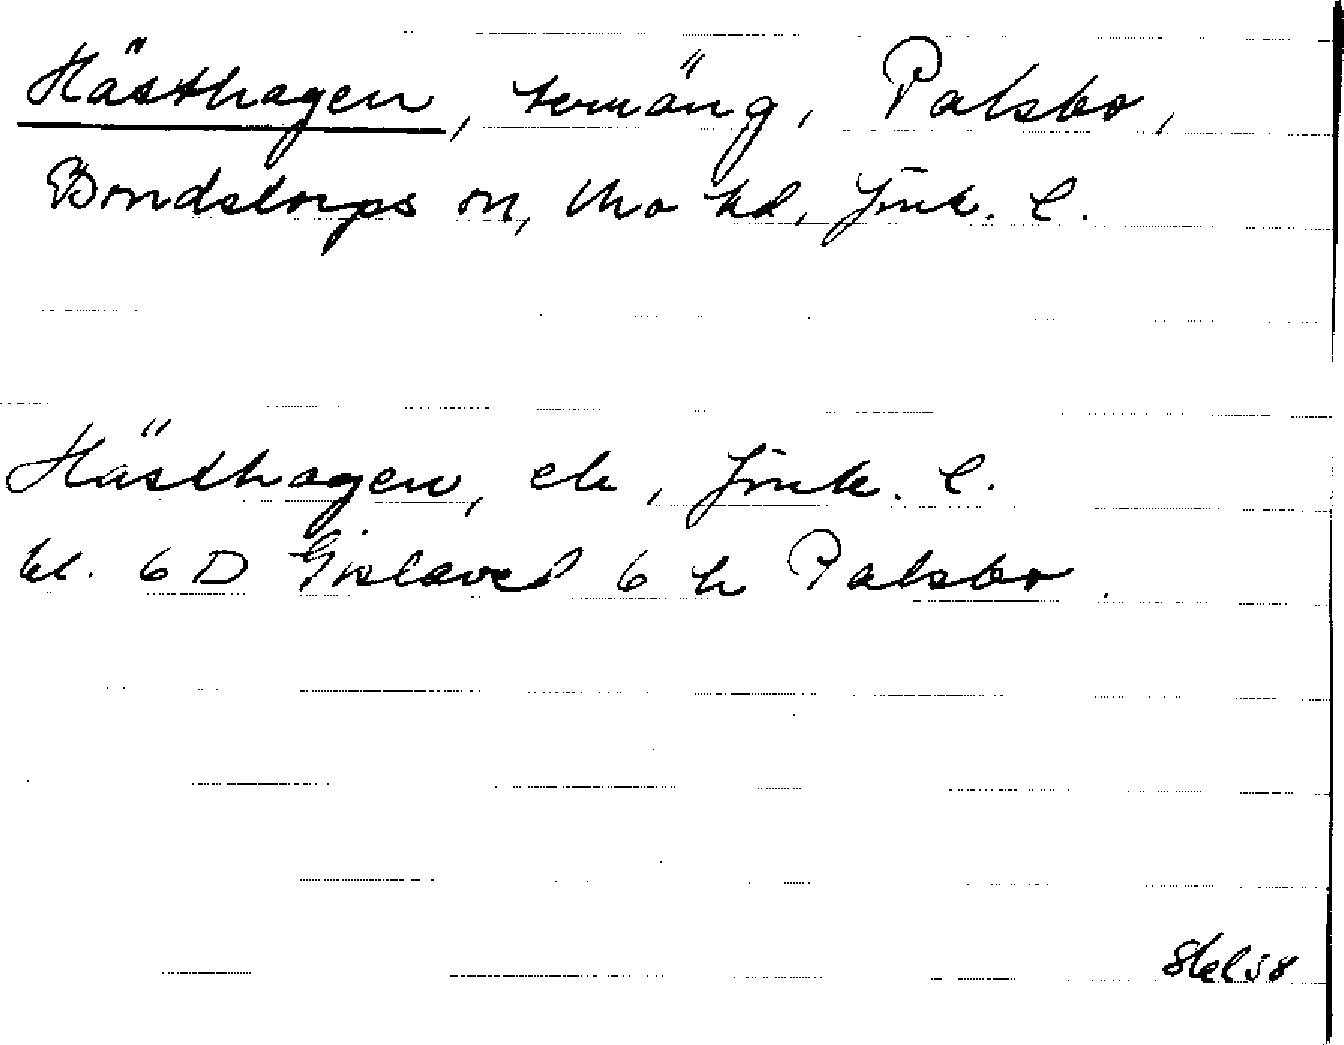 Hästhagen, teruäng, Palsbo,
Bondstorps sn, Mo hd, Jönk. l.
Hästhagen, ek, Jönk. l.
bl. 6 D Gislaved 6 h Palsbo.